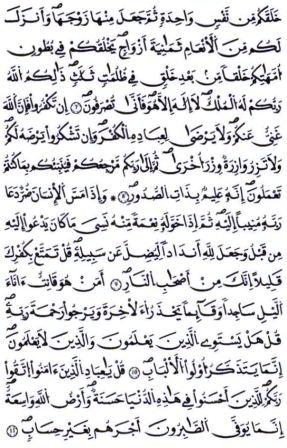 خَلَقَكُم مِّن نَّفْسٍ وَاحِدَةٍ ثُمَّ جَعَلَ مِنْهَا زَوْجَهَا وَأَنزَلَ
لَكُم مِّنَ الْأَنْعَامِ ثَمَانِيَةَ أَزْوَاجٍ يَخْلُقُكُمْ فِي بُطُونِ
أُمَّهَاتِكُمْ خَلْقًا مِّن بَعْدِ خَلْقٍ فِي ظُلُمَاتٍ ثَلَاثٍ ذَٰلِكُمُ اللَّهُ
رَبُّكُمْ لَهُ الْمُلْكُ لَا إِلَٰهَ إِلَّا هُوَ فَأَنَّىٰ تُصْرَفُونَ ۝ إِن تَكْفُرُوا فَإِنَّ اللَّهَ
غَنِيٌّ عَنكُمْ وَلَا يَرْضَىٰ لِعِبَادِهِ الْكُفْرَ وَإِن تَشْكُرُوا يَرْضَهُ لَكُمْ
وَلَا تَزِرُ وَازِرَةٌ وِزْرَ أُخْرَىٰ ثُمَّ إِلَىٰ رَبِّكُم مَّرْجِعُكُمْ فَيُنَبِّئُكُم بِمَا كُنتُمْ
تَعْمَلُونَ إِنَّهُ عَلِيمٌ بِذَاتِ الصُّدُورِ ۝ وَإِذَا مَسَّ الْإِنسَانَ ضُرٌّ دَعَا
رَبَّهُ مُنِيبًا إِلَيْهِ ثُمَّ إِذَا خَوَّلَهُ نِعْمَةً مِّنْهُ نَسِيَ مَا كَانَ يَدْعُو إِلَيْهِ
مِن قَبْلُ وَجَعَلَ لِلَّهِ أَندَادًا لِّيُضِلَّ عَن سَبِيلِهِ قُلْ تَمَتَّعْ بِكُفْرِكَ
قَلِيلًا إِنَّكَ مِنْ أَصْحَابِ النَّارِ ۝ أَمَنْ هُوَ قَانِتٌ آنَاءَ
اللَّيْلِ سَاجِدًا وَقَائِمًا يَحْذَرُ الْآخِرَةَ وَيَرْجُو رَحْمَةَ رَبِّهِ
قُلْ هَلْ يَسْتَوِي الَّذِينَ يَعْلَمُونَ وَالَّذِينَ لَا يَعْلَمُونَ
إِنَّمَا يَتَذَكَّرُ أُولُوا الْأَلْبَابِ ۝ قُلْ يَا عِبَادِ الَّذِينَ آمَنُوا اتَّقُوا
رَبَّكُمْ لِلَّذِينَ أَحْسَنُوا فِي هَٰذِهِ الدُّنْيَا حَسَنَةٌ وَأَرْضُ اللَّهِ وَاسِعَةٌ
إِنَّمَا يُوَفَّى الصَّابِرُونَ أَجْرَهُم بِغَيْرِ حِسَابٍ ۝